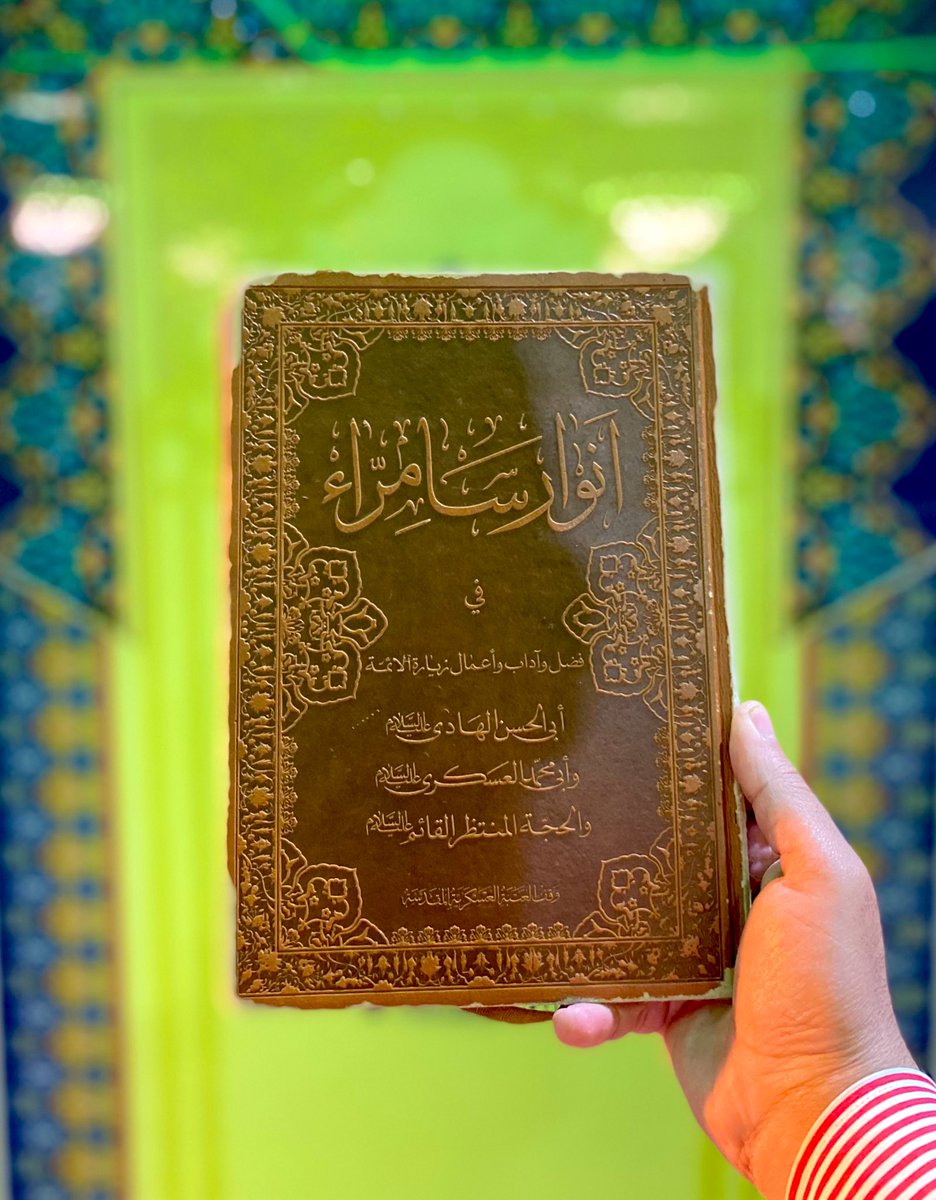 أنوار سامرّاء
في
فضل وآداب وأعمال زيارة الائمة
أبي الحسن الهادي عليه السلام
وأبي محمد العسكري عليه السلام
والحجّة المنتظر القائم عليه السلام
وقف العتبة العسكرية المقدسة